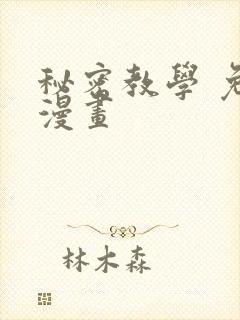 秘密教學
漫畫
林木森